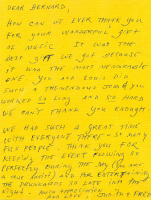 DEAR BERNARD,
HOW CAN WE EVER THANK YOU
FOR YOUR WONDERFUL GIFT
OF MUSIC. IT WAS THE
BEST GIFT WE GOT BECAUSE
IT WAS THE MOST MEMORABLE
ONE YOU AND LOUIS DID
SUCH A TREMENDOUS JOB & YOU
WORKED SO LONG AND SO HARD
WE CAN'T THANK YOU ENOUGH.
WE HAD SUCH A GREAT TIME
WITH EVERYONE THERE - SO MANY
FUN PEOPLE. THANK YOU FOR
KEEPING THE EVENT FLOWING SO
PERFECTLY DURING THE DAY
A TRUE ARTIST) AND FOR ENTERTAINING
THE SO LATE INTO THE
NIGHT. MUCH APPRECIATION
AND LOVE, FRED